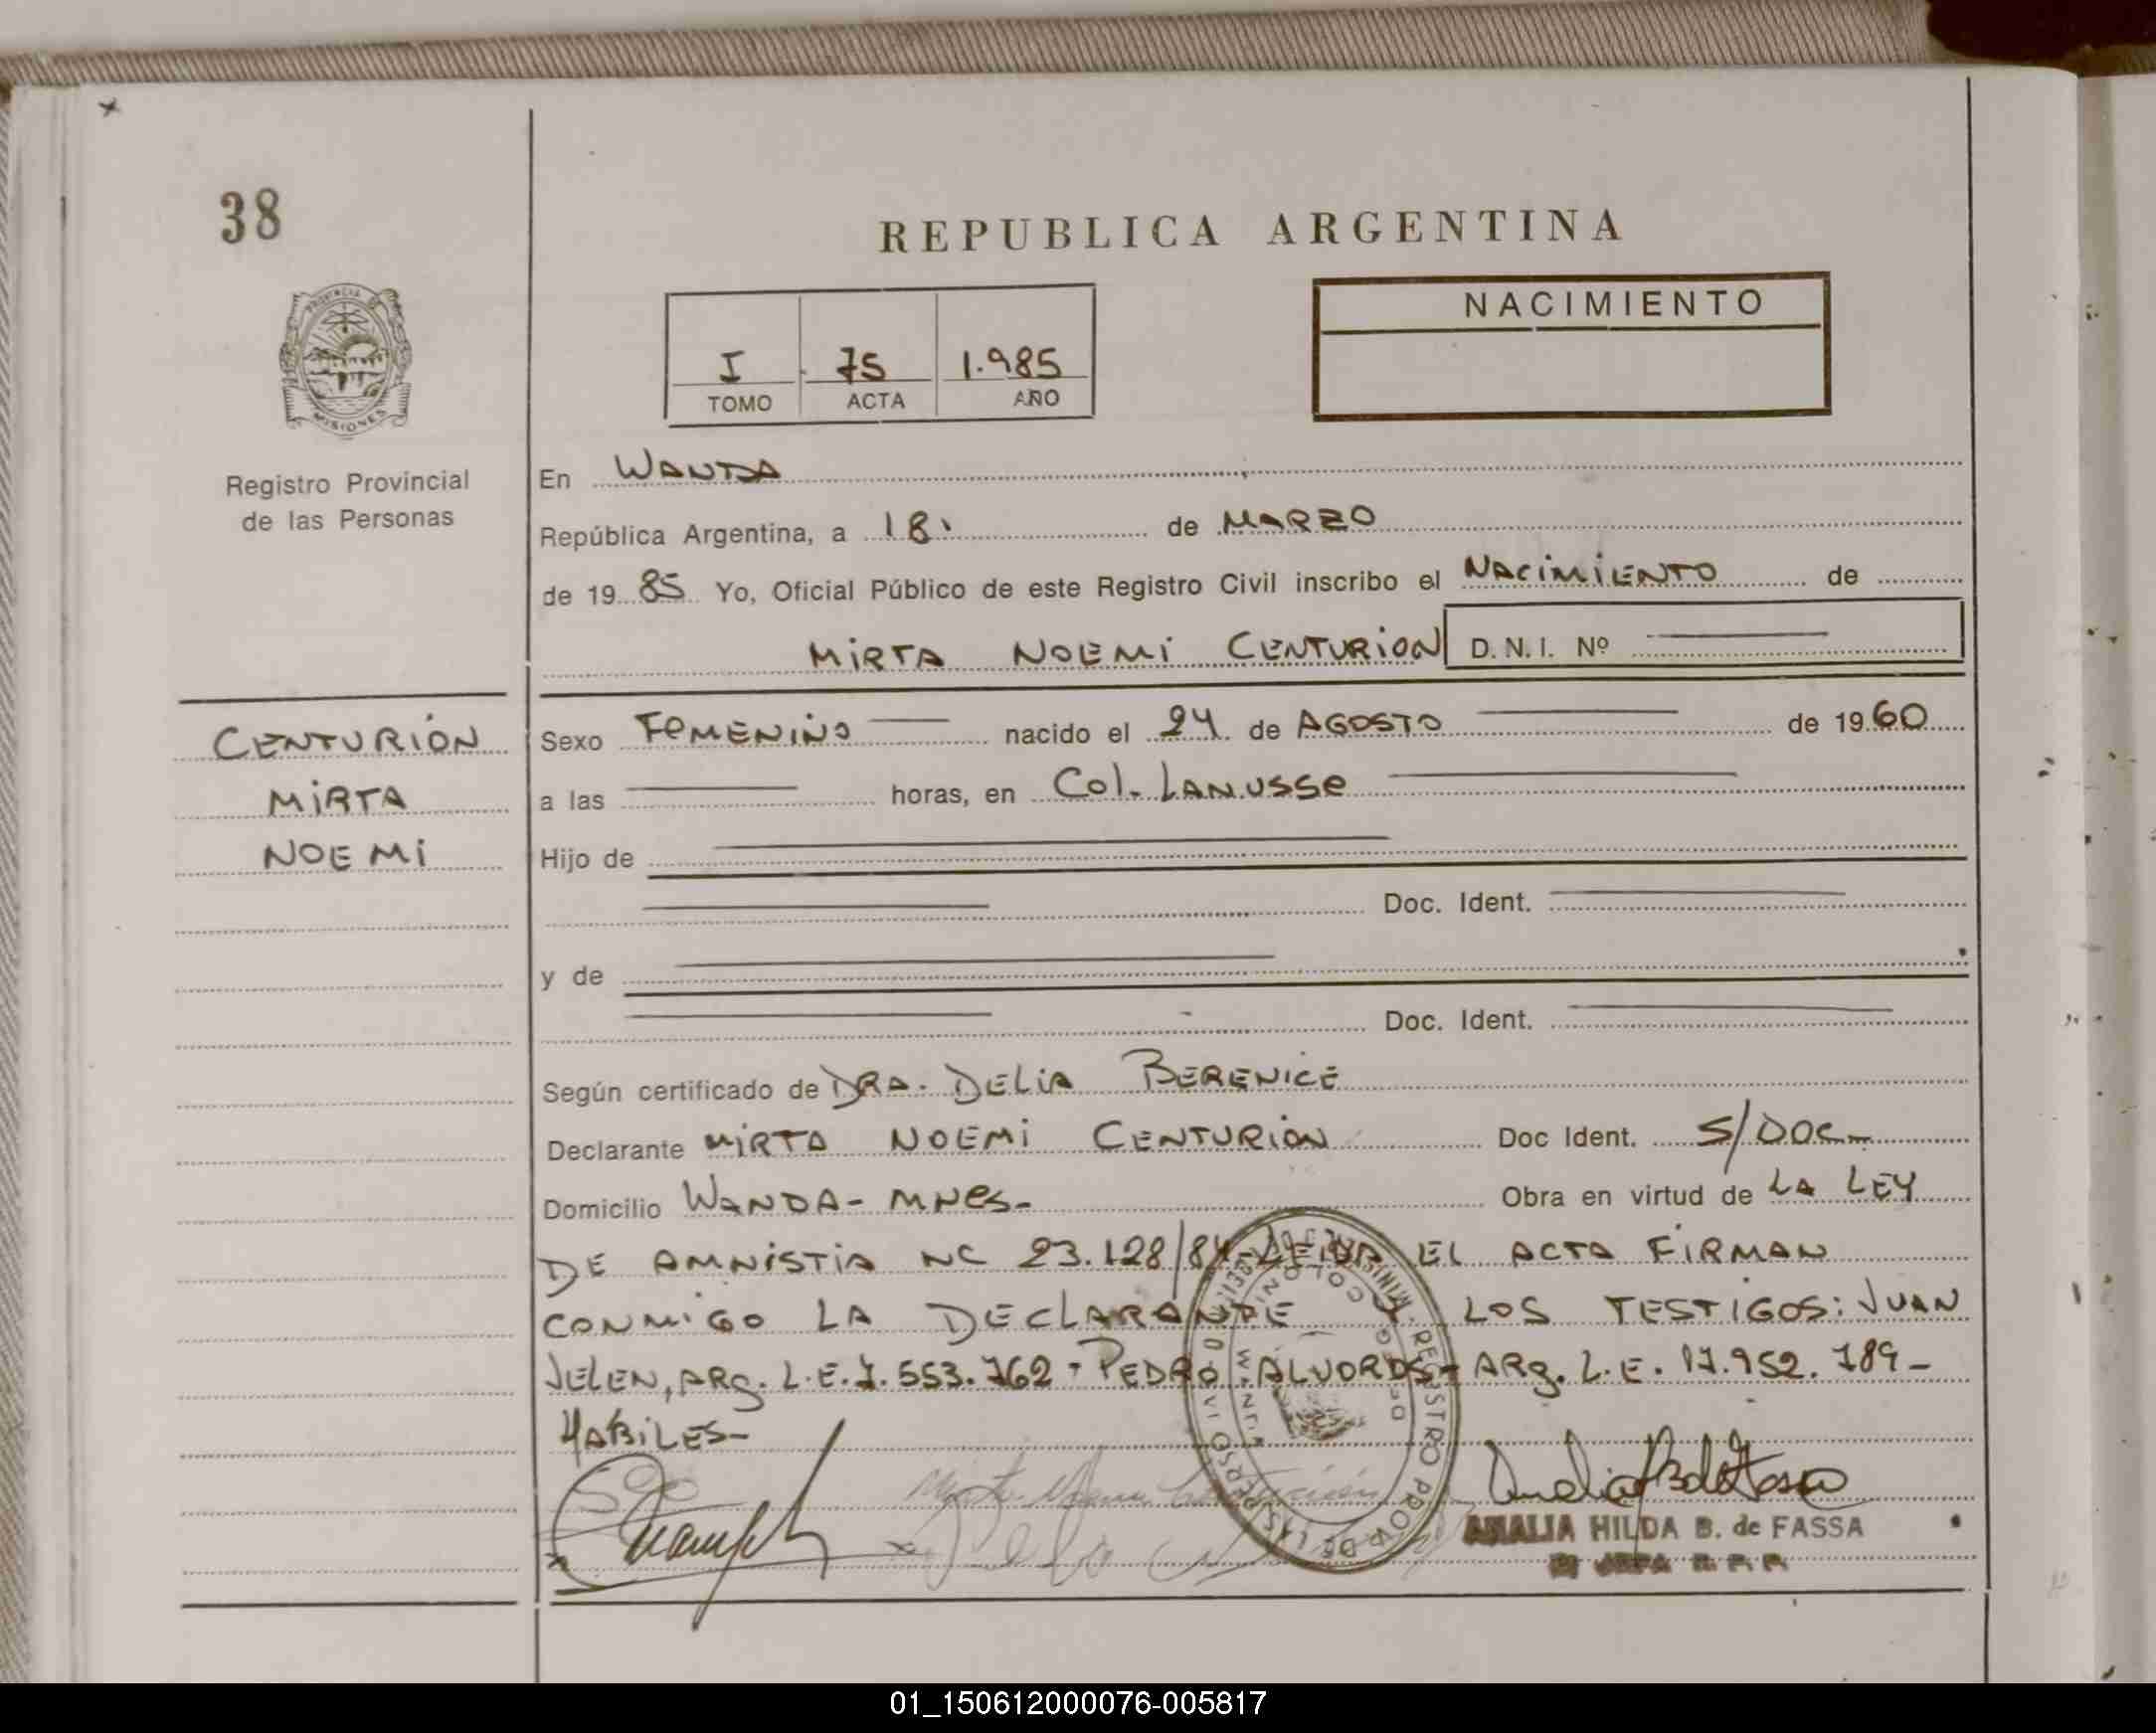 38
REPUBLICA ARGENTINA
NACIMIENTO
I 75 1.985
TOMO ACTA AÑO
PROVINCIA DE
MISIONES
Registro Provincial
de las Personas
En WANDA
República Argentina, a 18 de MARZO
de 1985 Yo, Oficial Público de este Registro Civil inscribo el NACIMIENTO de
MIRTA NOEMI CENTURION D. N. I. Nº
CENTURIÓN
MIRTA
NOEMI
Sexo FEMENINO nacido el 24 de AGOSTO de 1960
a las horas, en Col. LANUSSE
Hijo de
Doc. Ident.
y de
Doc. Ident.
Según certificado de DRA. DELIA BERENICE
Declarante MIRTA NOEMI CENTURION Doc Ident. S/DOC
Domicilio WANDA - MNES - Obra en virtud de LA LEY
DE AMNISTIA NC 23.128/84 - LEIDA EL ACTA FIRMAN
CONMIGO LA DECLARANTE Y LOS TESTIGOS: JUAN
JELEN, ARG. L.E. 7.553.762 - PEDRO ALVORDS - ARG. L.E. 17.952.789 -
HABILES -
Mirta Noemi Centurión
AMALIA HILDA B. de FASSA
JEFA R. P. P.
01_150612000076-005817